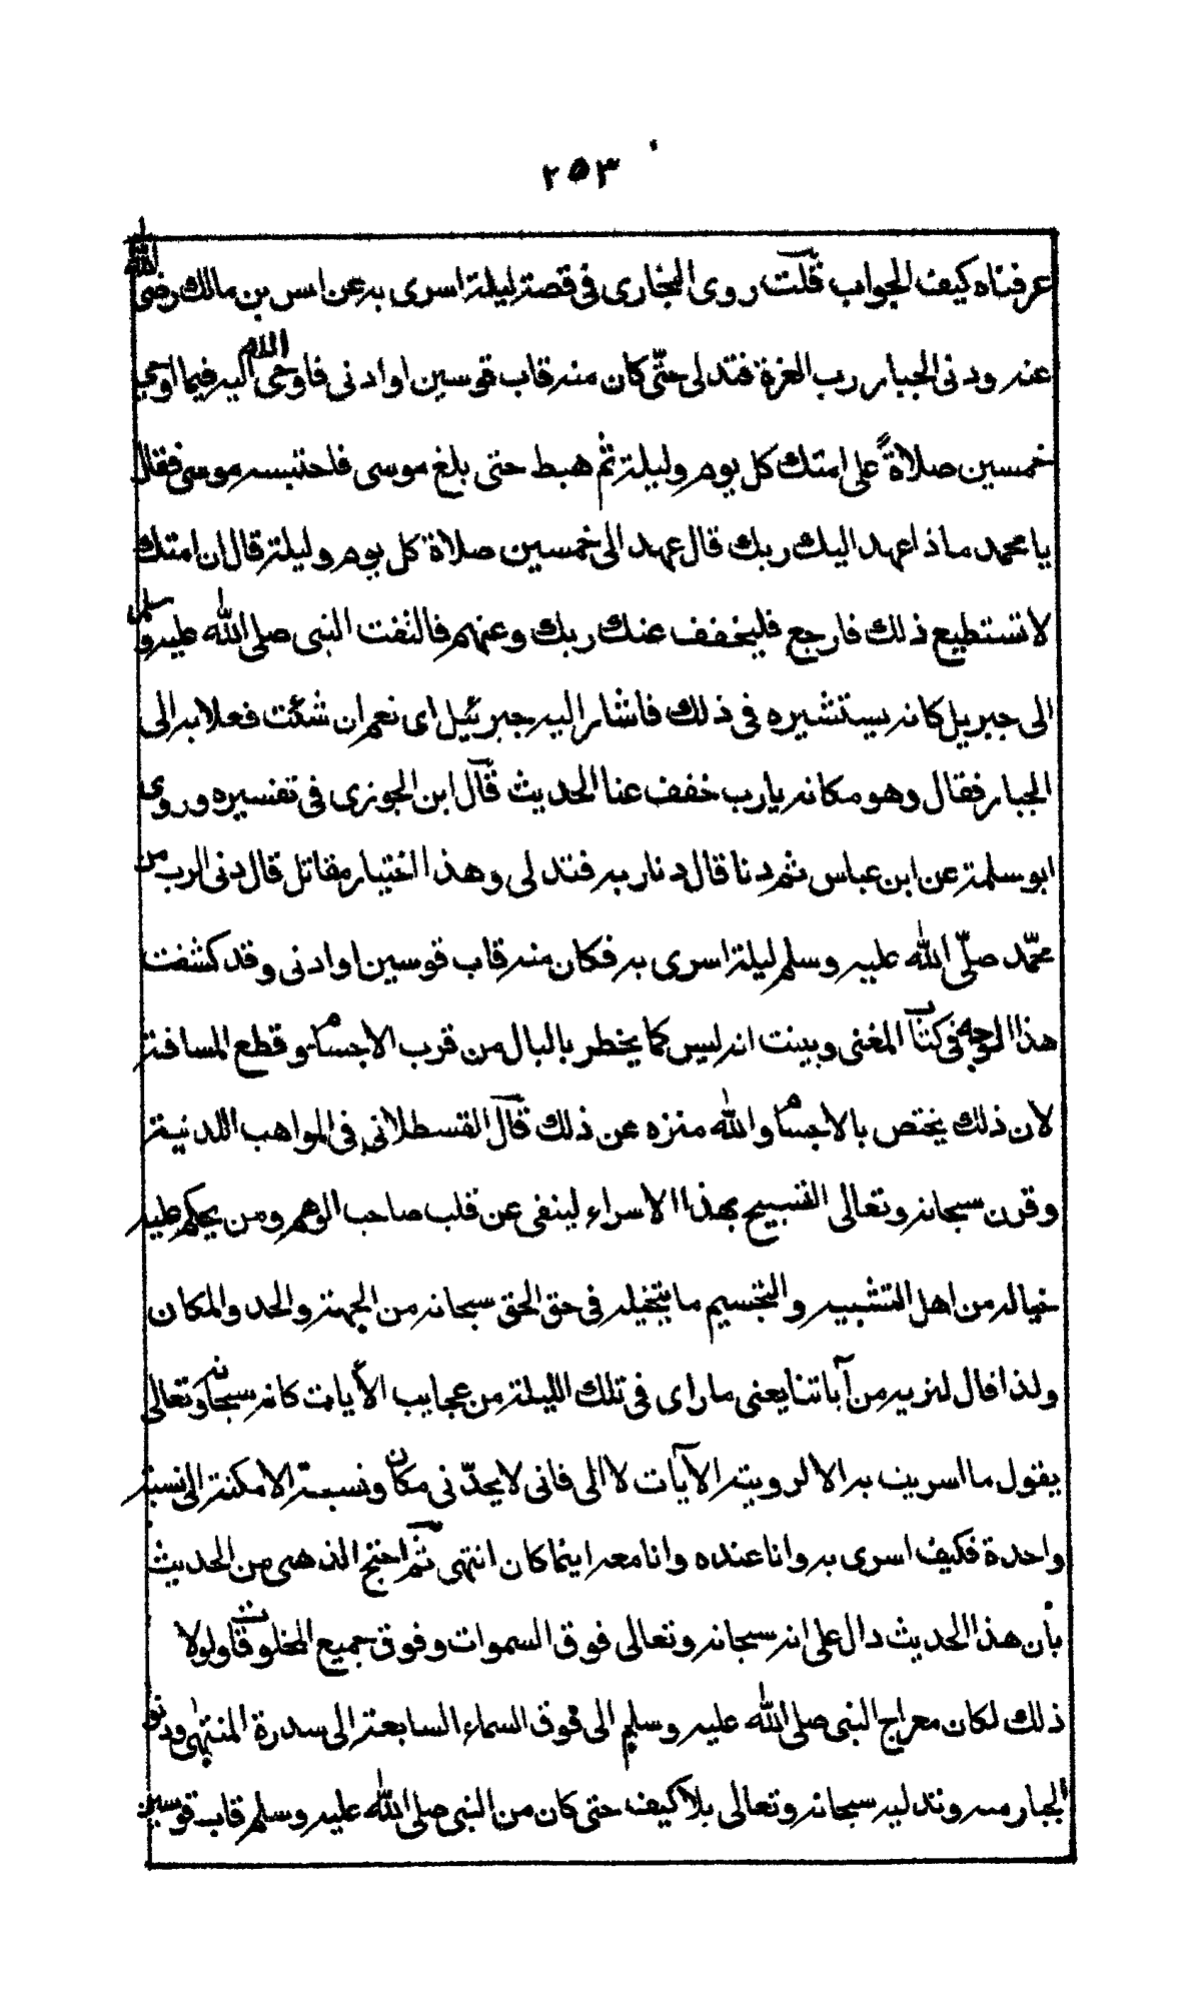 ٢٥٣
عرفناه كيف الجواب قلت روى البخارى فى قصة ليلة اسرى به عن انس بن مالك رضى الله
عنه ودنى الجبار رب العزة فتدلى حتّى كان منه قاب قوسين او ادنى فاوحى اليه فيما اوحى
خمسين صلاةً على امتك كل يوم وليلة ثم هبط حتى بلغ موسى فاحتبسه موسى فقال
يا محمد ماذا عهد اليك ربك قال عهد الى خمسين صلاة كل يوم وليلة قال ان امتك
لا تستطيع ذلك فارجع فليخفف عنك ربك وعنهم فالتفت النبى صلى الله عليه وسلم
الى جبريل كانه يستشيره فى ذلك فاشار اليه جبرئيل اى نعم ان شئت فعلا به الى
الجبار فقال وهو مكانه يارب خفف عنا الحديث قال ابن الجوزى فى تفسيره وروى
ابو سلمة عن ابن عباس ثم دنا قال دنا ربه فتدلى وهذا اختيار مقاتل قال دنى الرب من
محمّد صلّى الله عليه وسلم ليلة اسرى به فكان منه قاب قوسين او ادنى وقد كشفت
هذا الوجه فى كتاب المغنى وبينت انه ليس كما يخطر بالبال من قرب الاجسام وقطع المسافة
لان ذلك يختص بالاجسام والله منزه عن ذلك قال القسطلانى فى المواهب اللدنية
وقرن سبحانه وتعالى التسبيح بهذا الاسراء لينفى عن قلب صاحب الوهم ومن يحكم عليه
خياله من اهل التشبيه والتجسيم ما يتخيله فى حق الحق سبحانه من الجهة والحد والمكان
ولذا قال لنريه من آياتنا يعنى ما راى فى تلك الليلة من عجايب الآيات كانه سبحانه وتعالى
يقول ما اسريت به الا لرويته الآيات لا الى فانى لا يحدّنى مكان ونسبة الامكنة الى نسبة
واحدة فكيف اسرى به وانا عنده وانا معه اينما كان انتهى ثم احتج الذهبى من الحديث
بأن هذا الحديث دال على انه سبحانه وتعالى فوق السموات وفوق جميع المخلوقات ولولا
ذلك لكان معراج النبى صلى الله عليه وسلم الى فوق السماء السابعة الى سدرة المنتهى ودنو
الجبار منه وتدليه سبحانه وتعالى بلا كيف حتى كان من النبى صلى الله عليه وسلم قاب قوسين